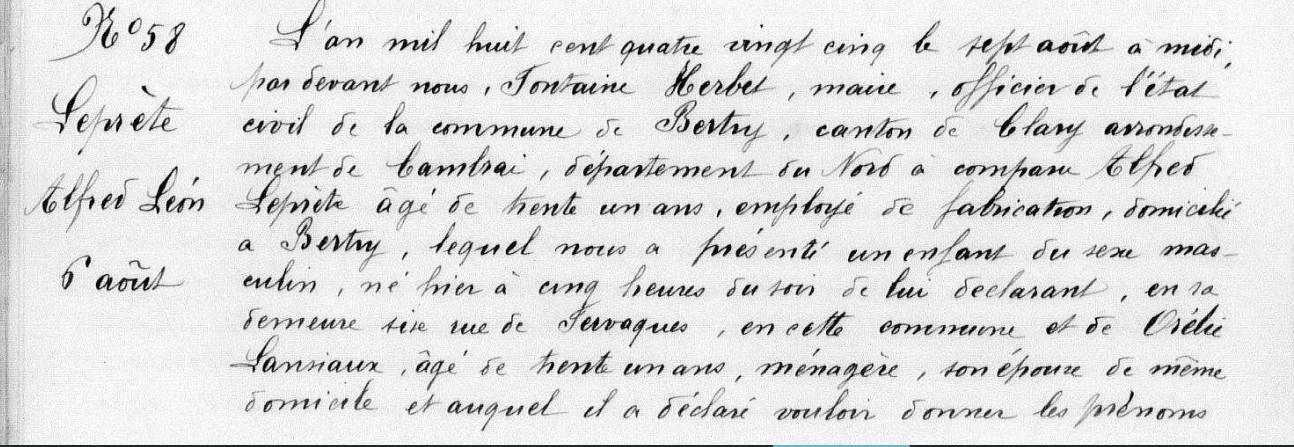 N° 58
Leprète
Alfred Léon
6 août
L'an mil huit cent quatre vingt cinq le sept août à midi,
par devant nous, Fontaine Herbet, maire, officier de l'état
civil de la commune de Bertry, canton de Clary arrondisse-
ment de Cambrai, département du Nord a comparu Alfred
Leprète âgé de trente un ans, employé de fabrication, domicilié
a Bertry, lequel nous a présenté un enfant du sexe mas-
culin, né hier à cinq heures du soir de lui déclarant, en sa
demeure sise rue de Fervaques, en cette commune et de Orélie
Lansiaux, âgé de trente un ans, ménagère, son épouse de même
domicile et auquel il a déclaré vouloir donner les prénoms